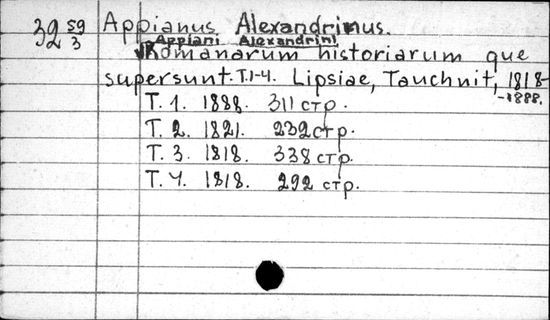 32 59/3 Appianus Alexandrinus.
Appiani Alexandrini
Romanarum historiarum que
supersunt. T.1-4. Lipsiae, Tauchnit, 1818-
-1888.
T. 1. 1888. 311 стр.
T. 2. 1821. 232 стр.
T. 3. 1818. 338 стр.
T. 4. 1818. 292 стр.